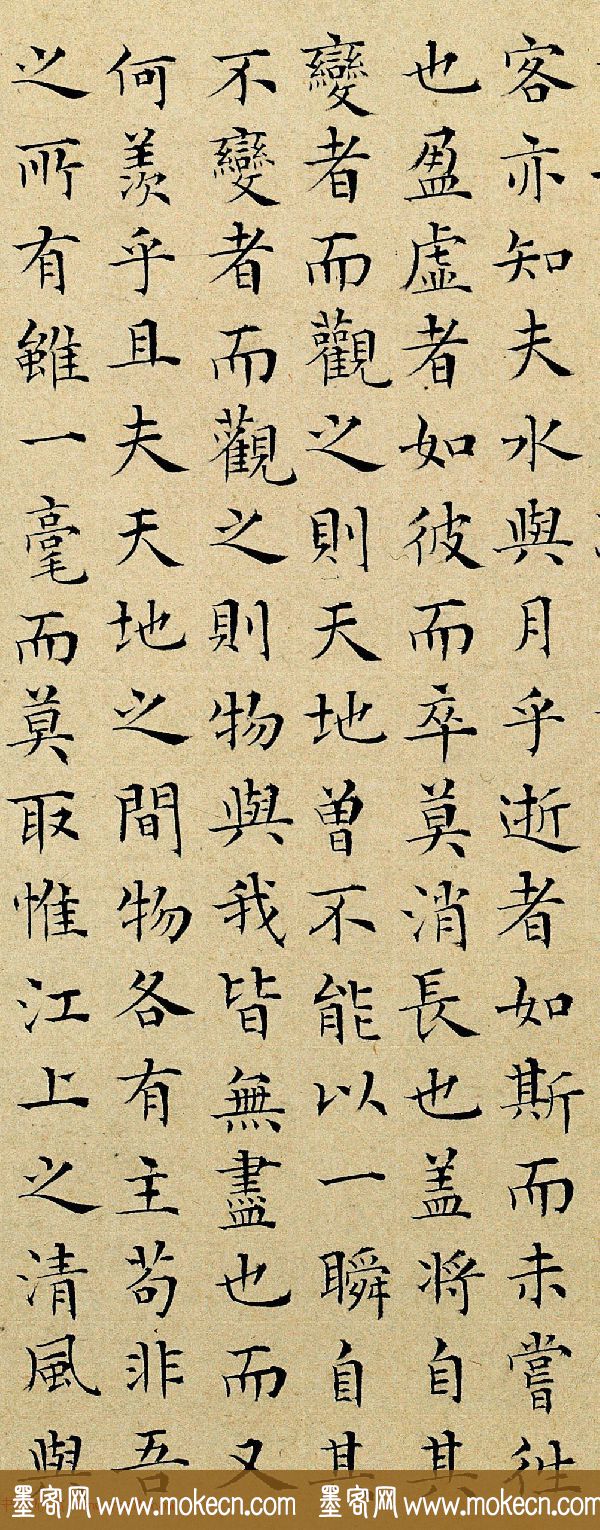 客亦知夫水與月乎逝者如斯而未嘗往
也盈虛者如彼而卒莫消長也盖將自其
變者而觀之則天地曾不能以一瞬自其
不變者而觀之則物與我皆無盡也而又
何羨乎且夫天地之間物各有主苟非吾
之所有雖一毫而莫取惟江上之清風與
墨客网 www.mokecn.com 墨客网 www.mokecn.com